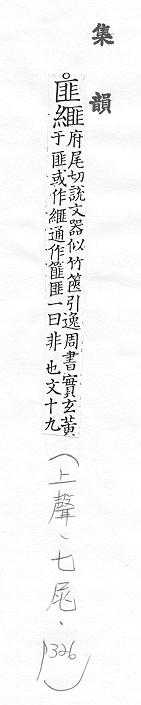 集韻
匪䌦府尾切說文器似竹篋引逸周書實玄黃
于匪或作䌦通作篚匪一曰非也文十九
(上聲、七尾、p326)